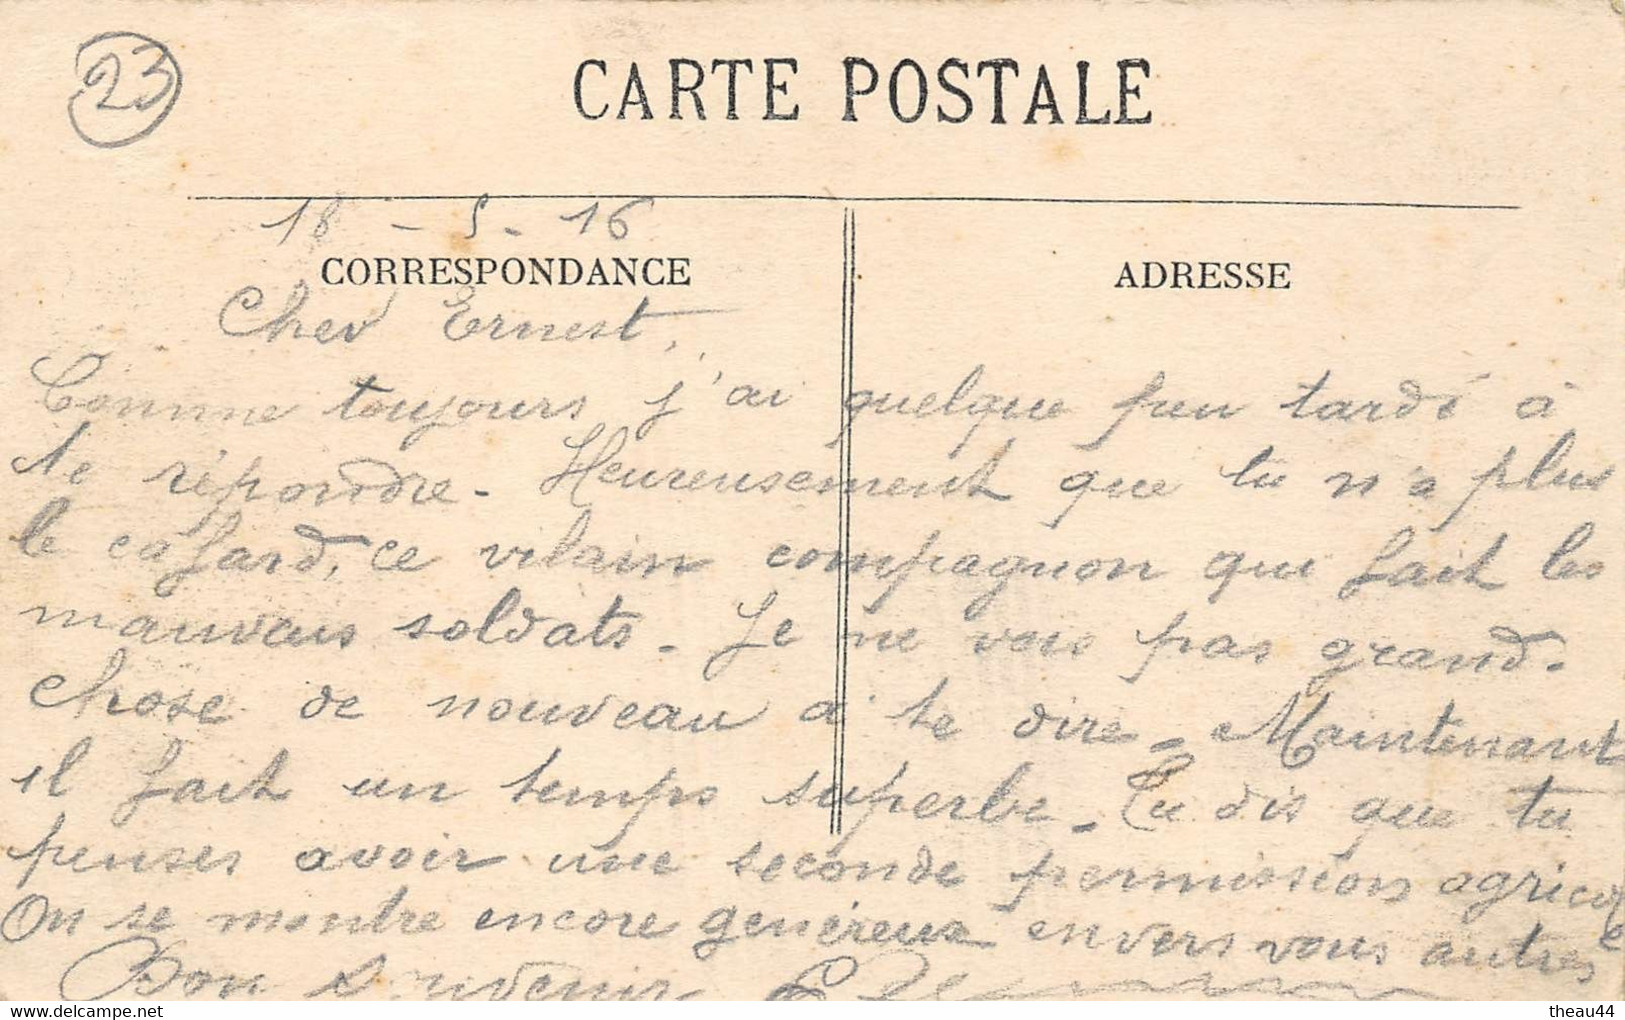 23
CARTE POSTALE
18 - 5 - 16
CORRESPONDANCE
ADRESSE
Cher Ernest,
Comme toujours j'ai quelque peu tardé à
te répondre - Heureusement que tu n'a plus
le cafard, ce vilain compagnon que fait les
mauvais soldats - Je ne vois pas grand-
chose de nouveau à te dire - Maintenant
il fait un temps superbe - Tu dis que tu
penses avoir une seconde permission agricole
On se montre encore généreux envers vous autres
Bon souvenir
theau44